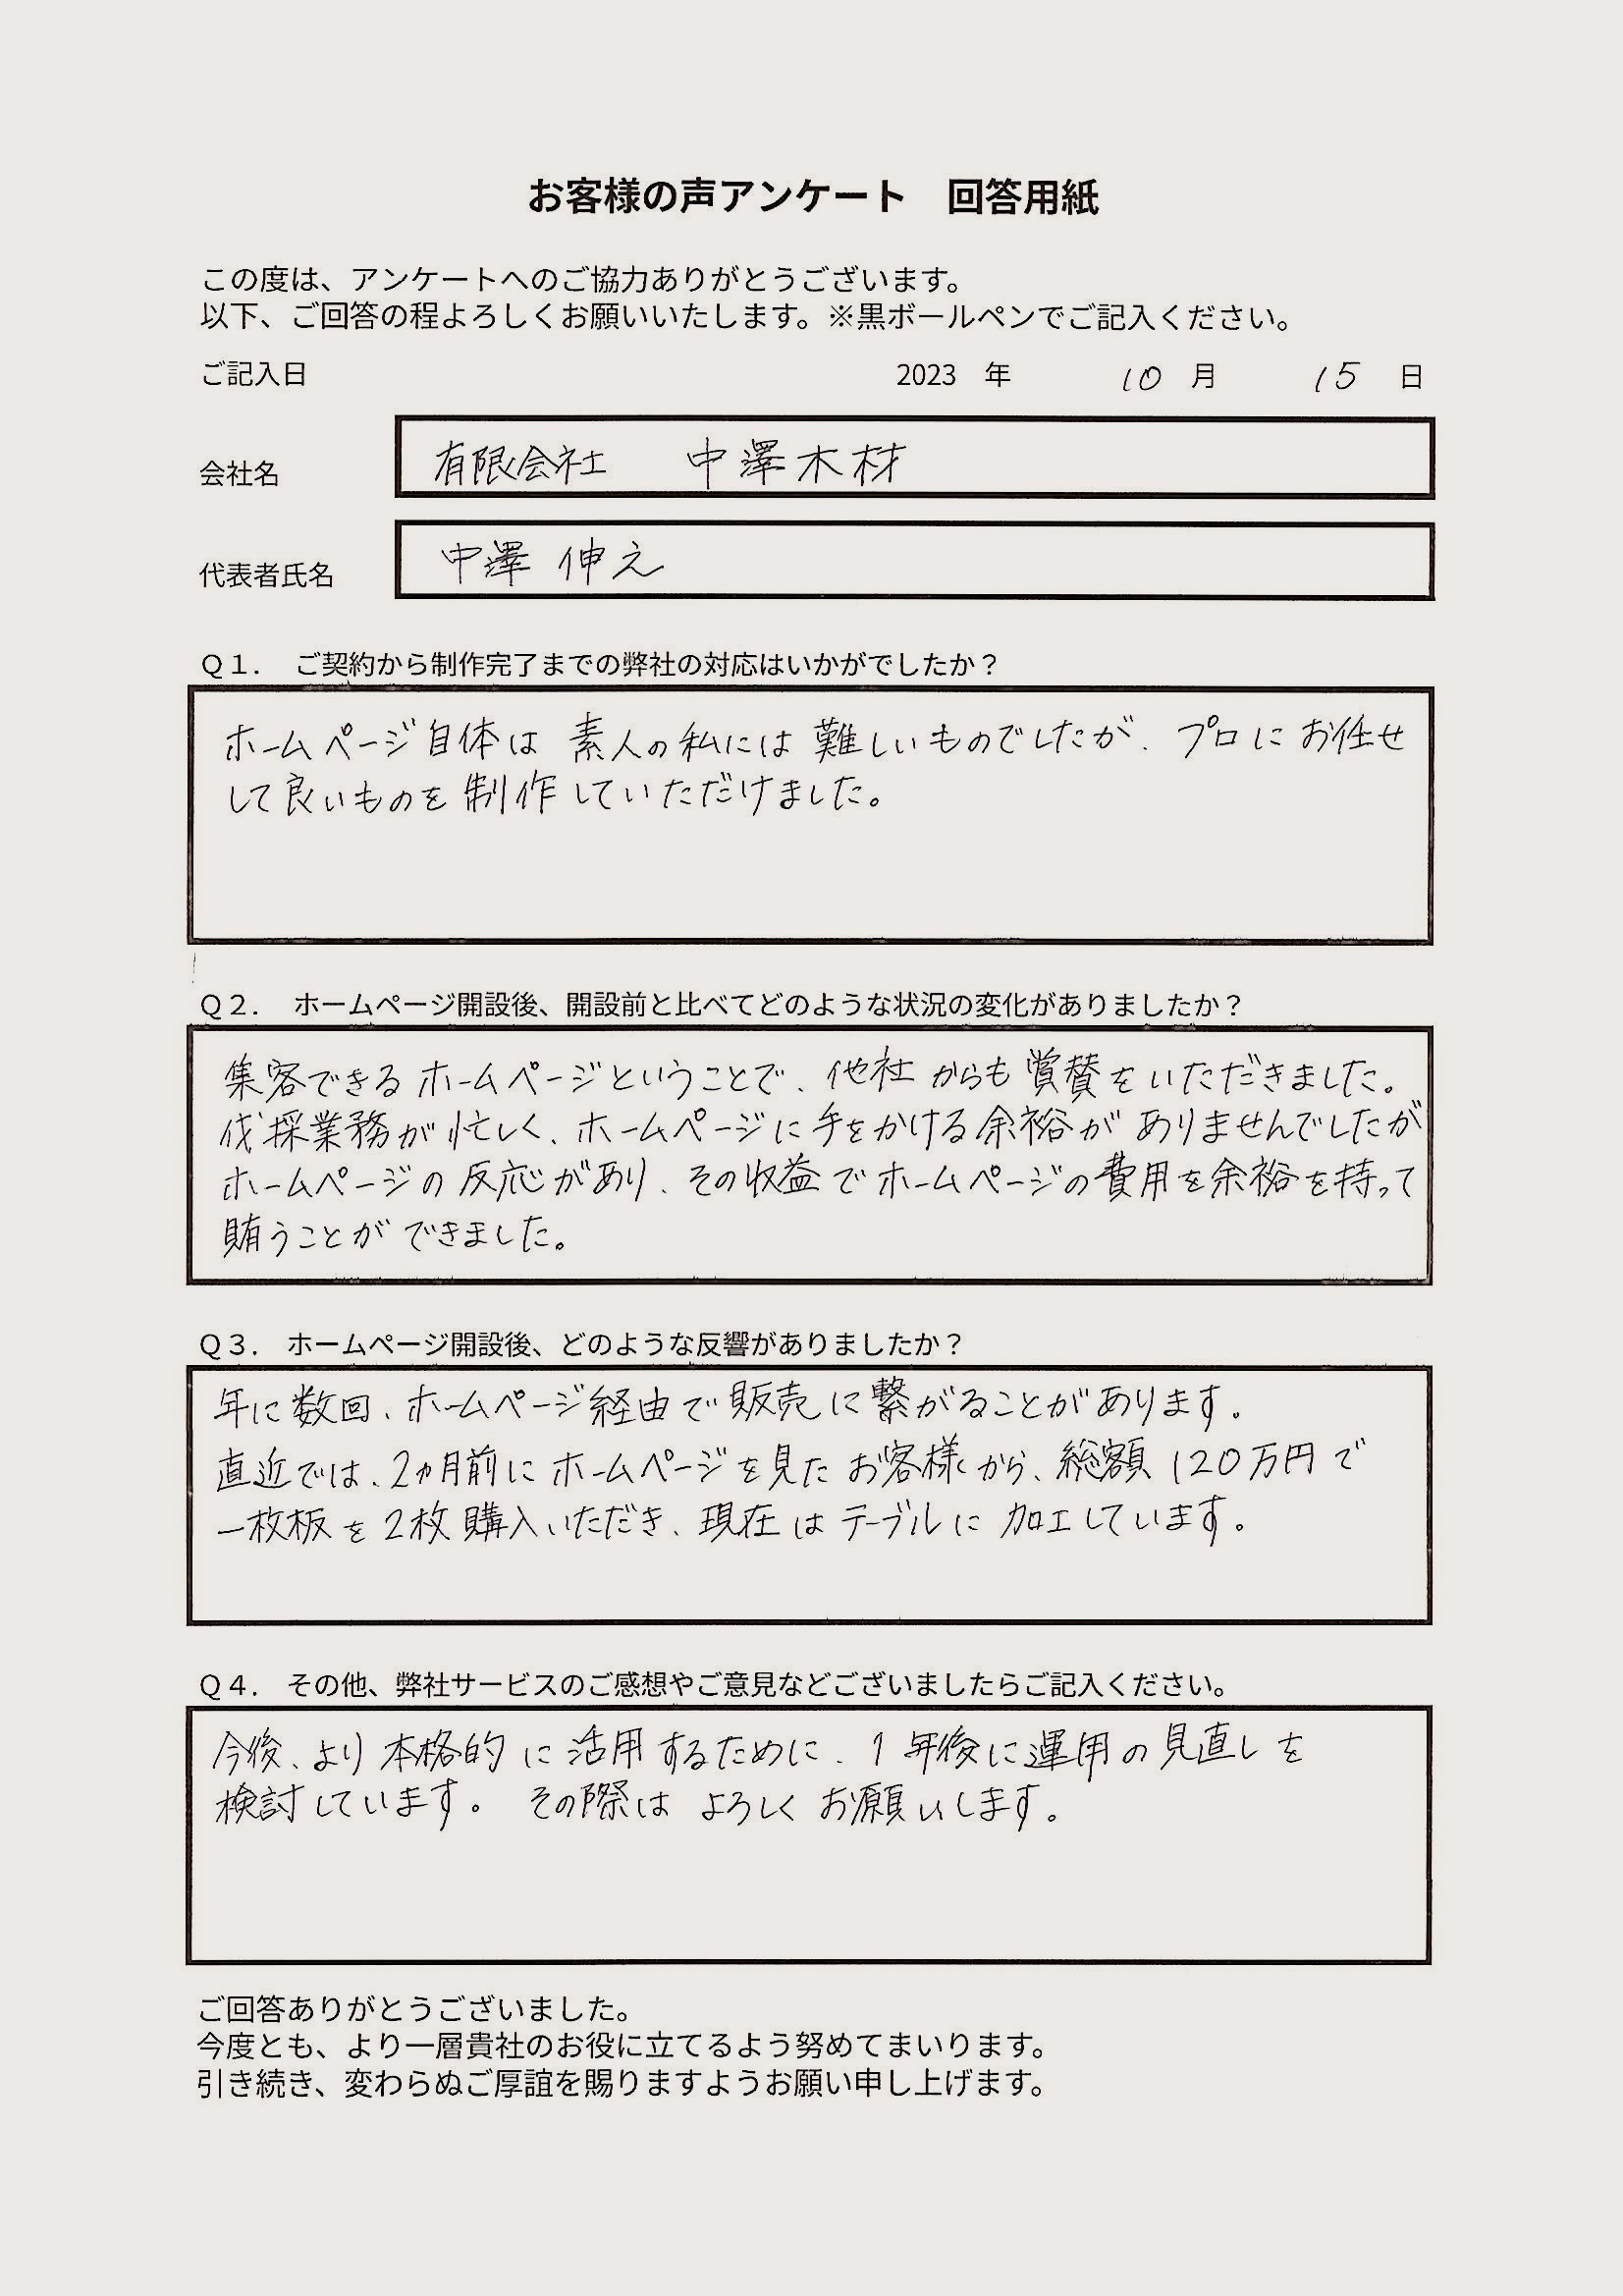 お客様の声アンケート　回答用紙
この度は、アンケートへのご協力ありがとうございます。
以下、ご回答の程よろしくお願いいたします。※黒ボールペンでご記入ください。
ご記入日　2023　年　10　月　15　日
会社名　有限会社　中澤木材
代表者氏名　中澤 伸え
Ｑ１．　ご契約から制作完了までの弊社の対応はいかがでしたか？
ホームページ自体は素人の私には難しいものでしたが、プロにお任せ
して良いものを制作していただけました。
Ｑ２．　ホームページ開設後、開設前と比べてどのような状況の変化がありましたか？
集客できるホームページということで、他社からも賞賛をいただきました。
伐採業務が忙しく、ホームページに手をかける余裕がありませんでしたが
ホームページの反応があり、その収益でホームページの費用を余裕を持って
賄うことができました。
Ｑ３．　ホームページ開設後、どのような反響がありましたか？
年に数回、ホームページ経由で販売に繋がることがあります。
直近では、2ヵ月前にホームページを見たお客様から、総額120万円で
一枚板を2枚購入いただき、現在はテーブルに加工しています。
Ｑ４．　その他、弊社サービスのご感想やご意見などございましたらご記入ください。
今後、より本格的に活用するために、1年後に運用の見直しを
検討しています。　その際はよろしくお願いします。
ご回答ありがとうございました。
今度とも、より一層貴社のお役に立てるよう努めてまいります。
引き続き、変わらぬご厚誼を賜りますようお願い申し上げます。